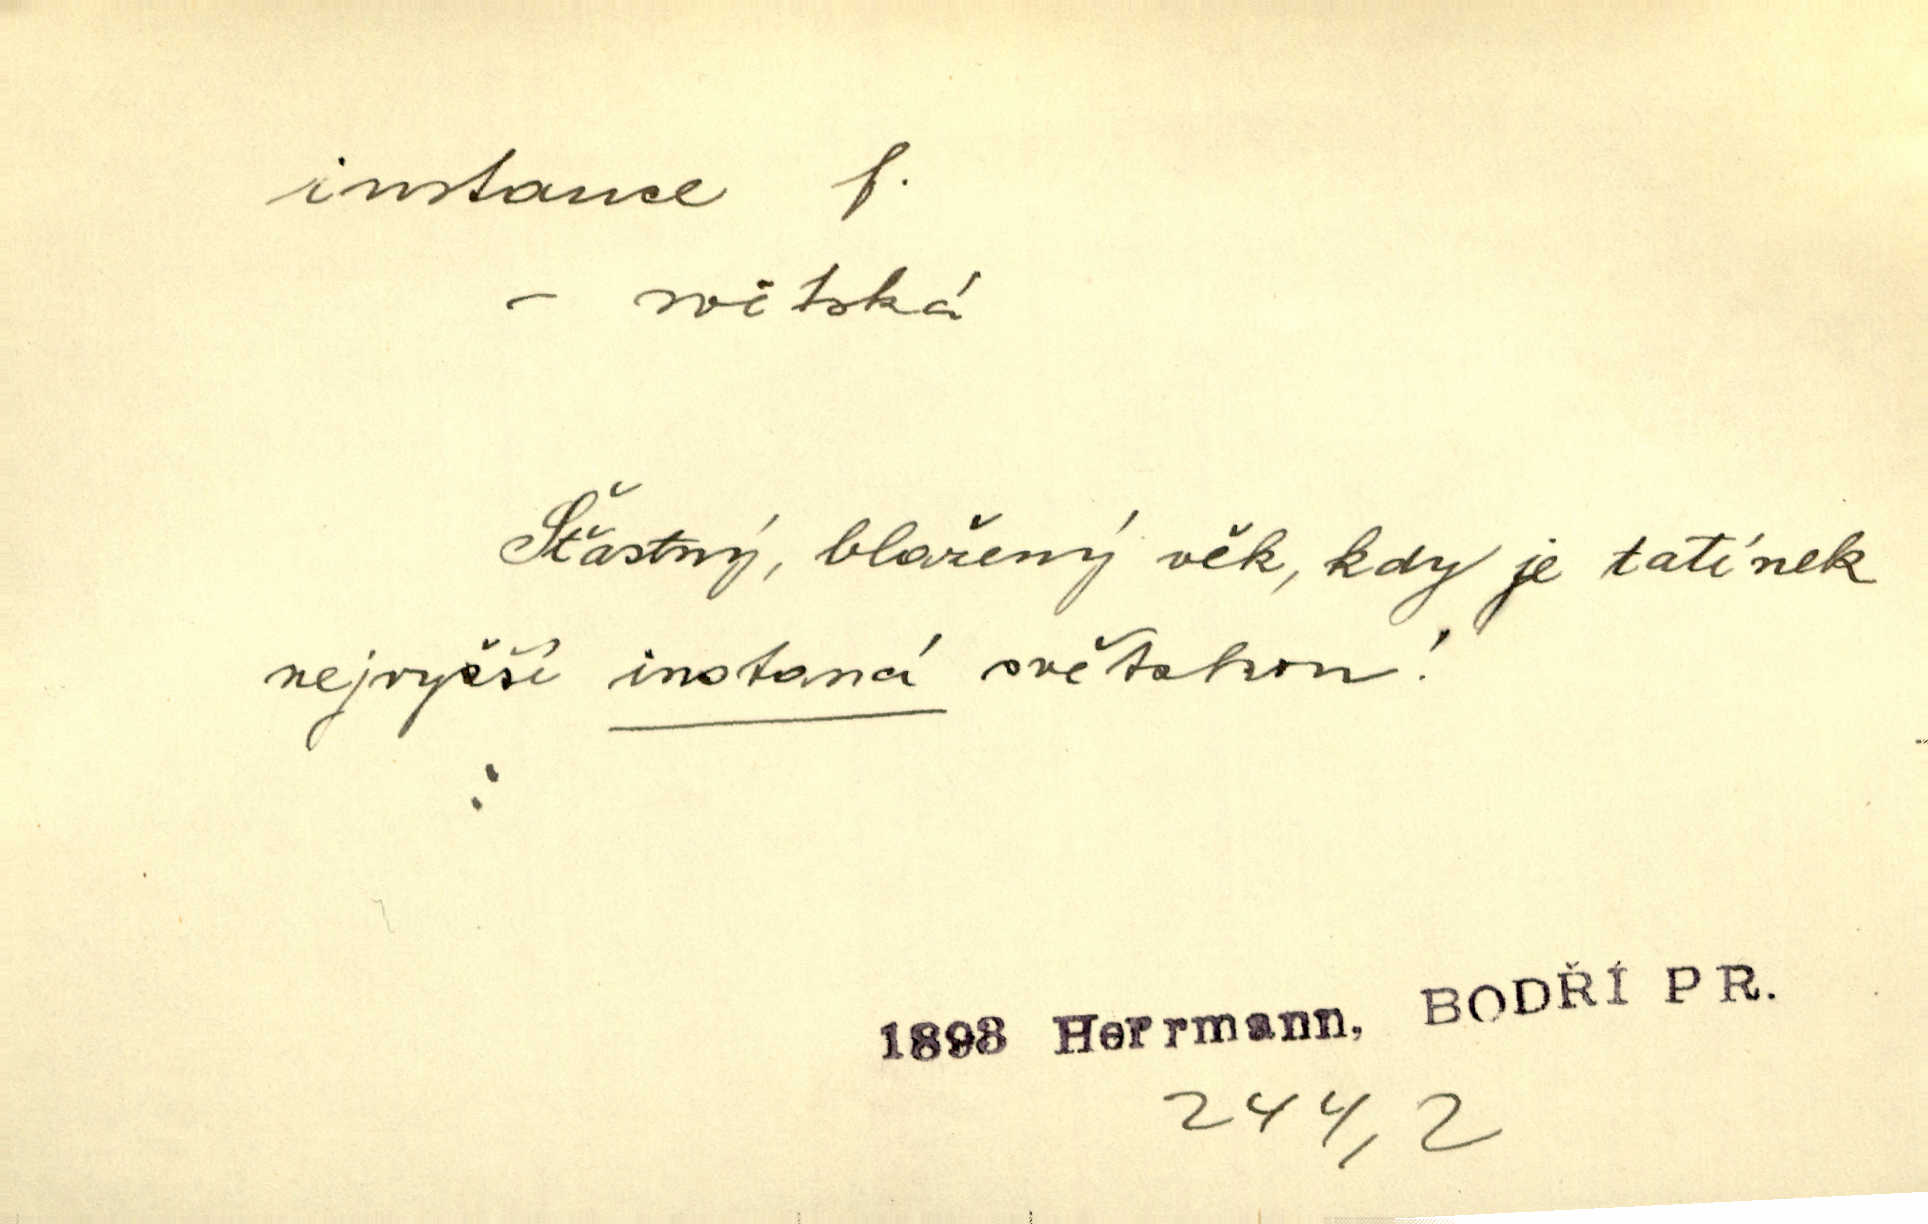 instance f.
- světská
Šťastný, blažený věk, kdy je tatínek
nejvyšší instancí světskou!
1893 Herrmann, BODŘÍ PR.
244, 2